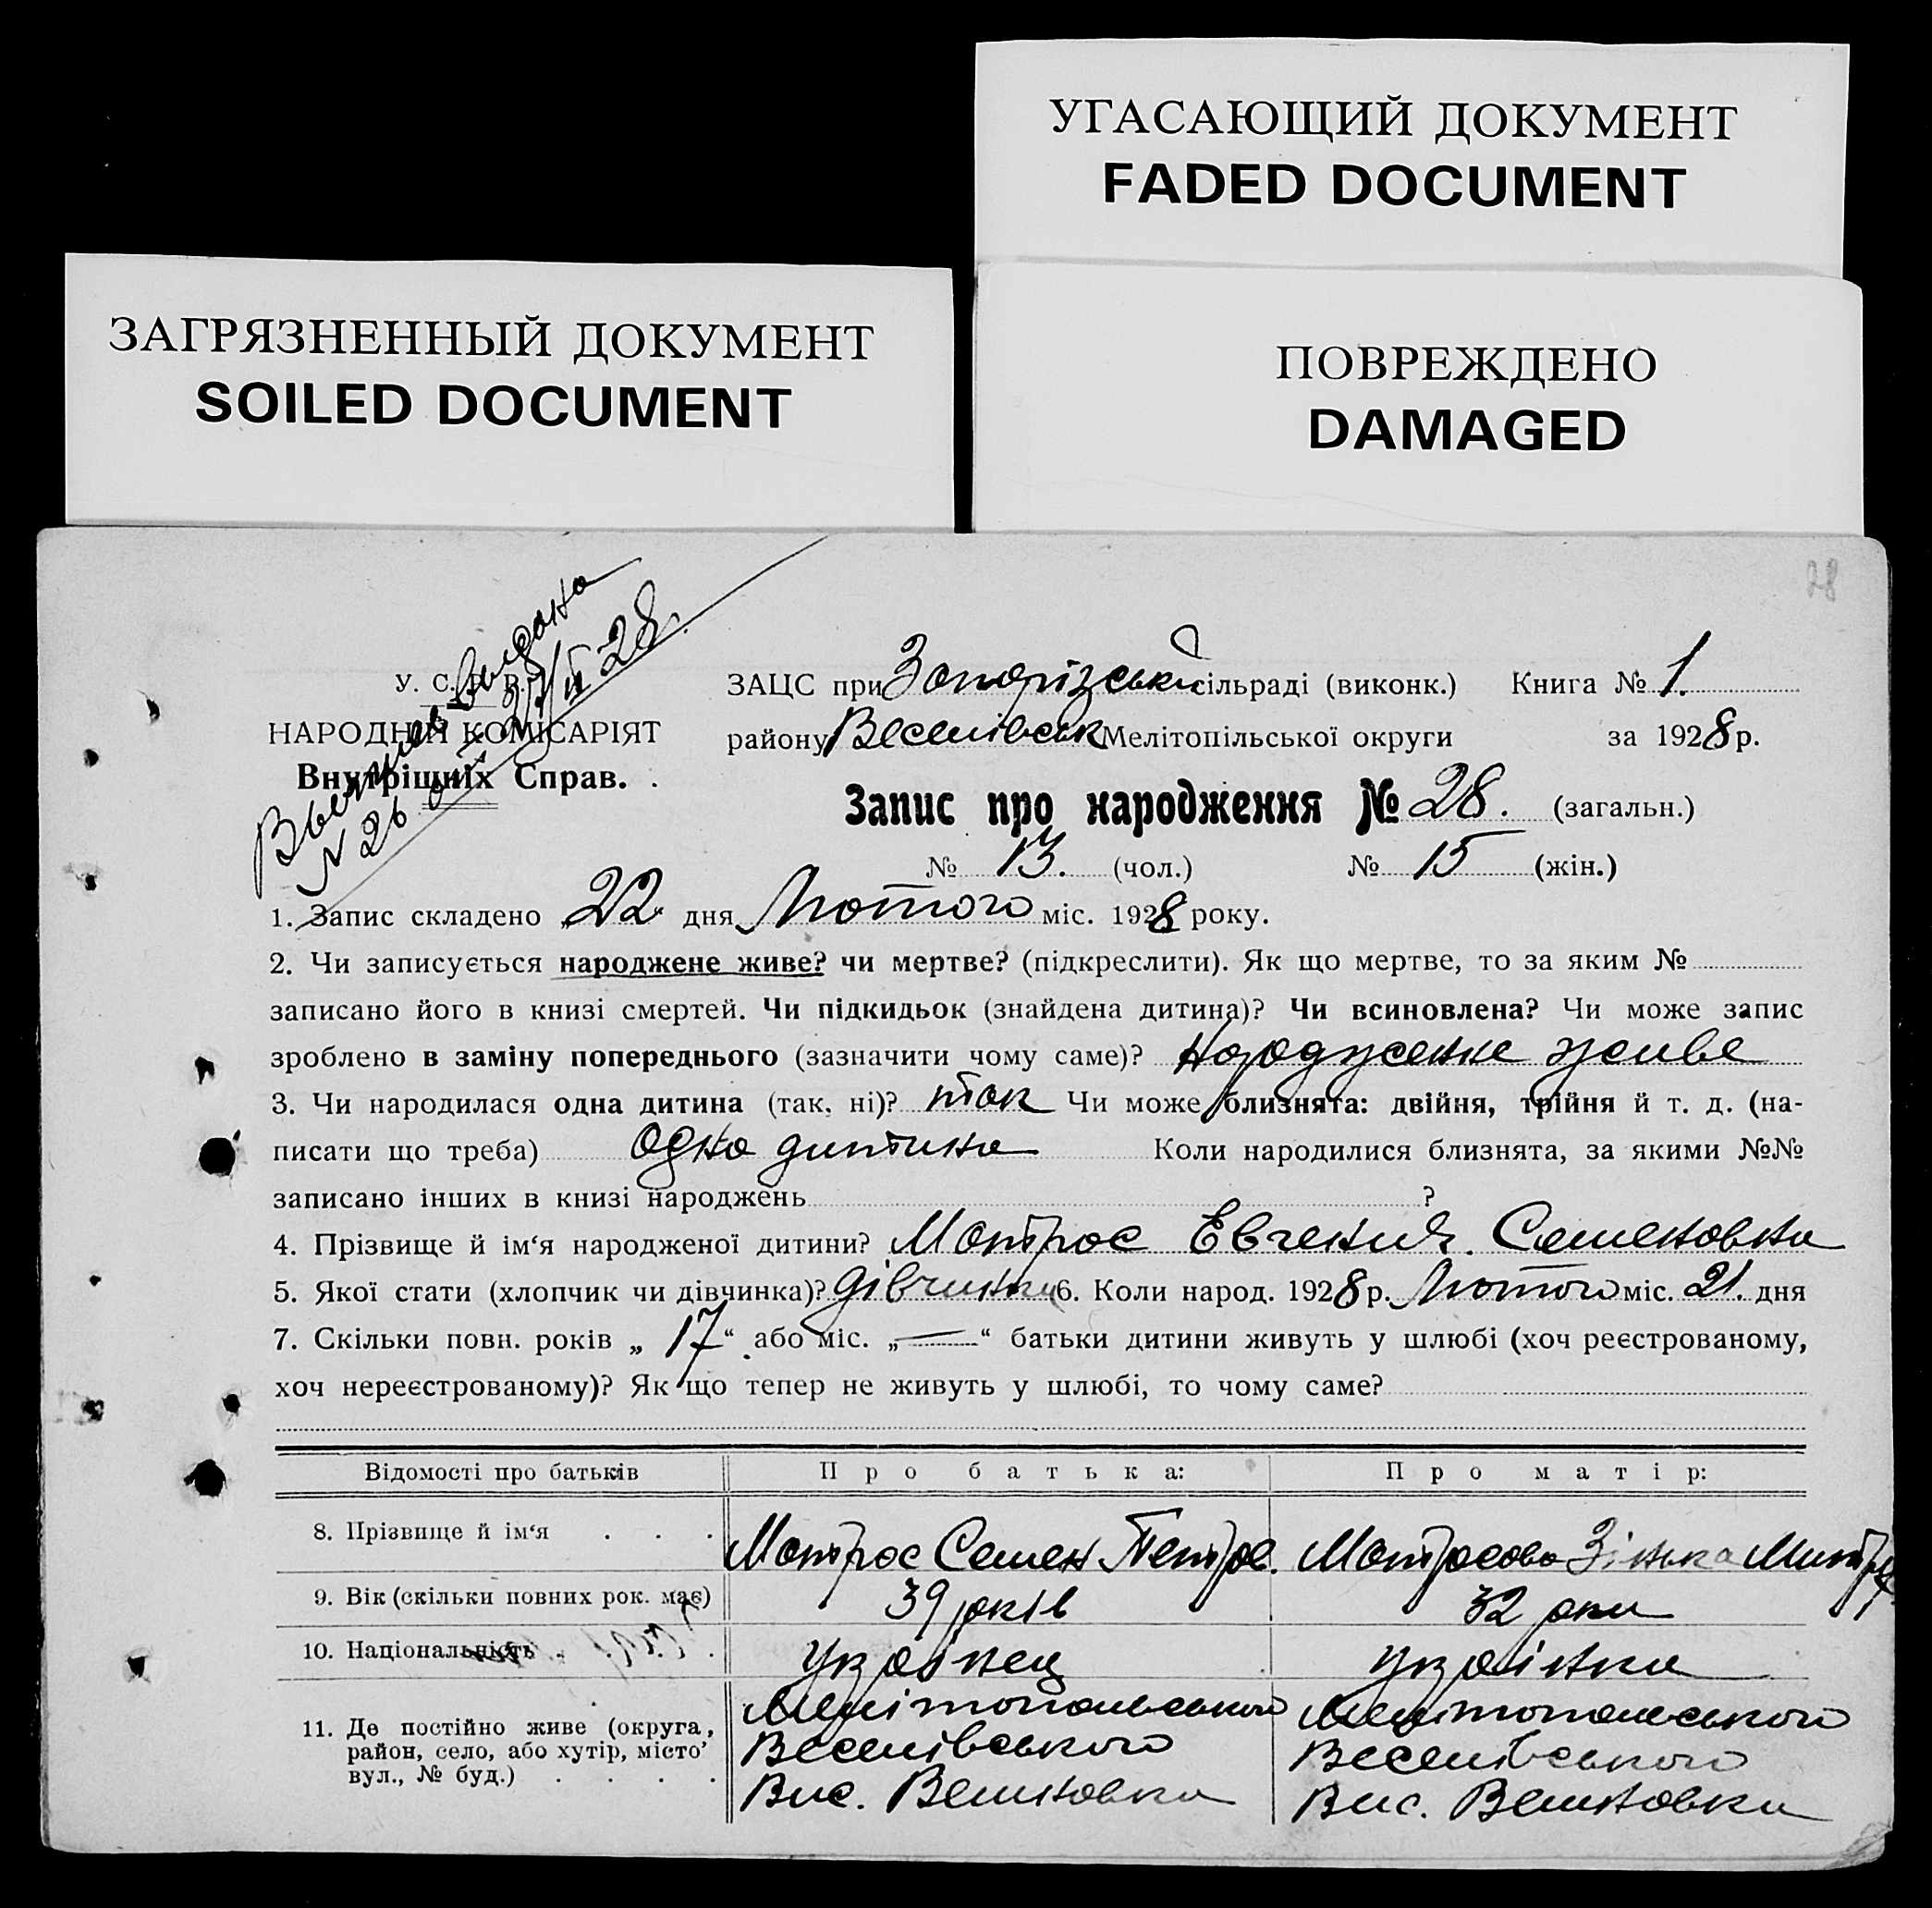 УГАСАЮЩИЙ ДОКУМЕНТ
FADED DOCUMENT
ЗАГРЯЗНЕННЫЙ ДОКУМЕНТ
SOILED DOCUMENT
ПОВРЕЖДЕНО
DAMAGED
28
Выпись выдана
N 26 28
У. С. Р. Р.
НАРОДНІЙ КОМІСАРІЯТ
Внутрішніх Справ.
ЗАЦС при Запорізській сільраді (виконк.) Книга № 1.
району Веселівськ Мелітопільської округи за 1928 р.
Запис про народження № 28. (загальн.)
№ 13. (чол.) № 15 (жін.)
1. Запис складено „22 дня Лютого міс. 1928 року.
2. Чи записується народжене живе? чи мертве? (підкреслити). Як що мертве, то за яким №
записано його в книзі смертей. Чи підкидьок (знайдена дитина)? Чи всиновлена? Чи може запис
зроблено в заміну попереднього (зазначити чому саме)? Народження живе
3. Чи народилася одна дитина (так, ні)? так Чи може близнята: двійня, трійня й т. д. (на-
писати що треба) Одна дитина Коли народилися близнята, за якими №№
записано інших в книзі народжень ?
4. Прізвище й ім‘я народженої дитини? Матрос Евгения. Семеновна
5. Якої стати (хлопчик чи дівчинка)? дівчинка 6. Коли народ. 1928 р. Лютого міс. 21. дня
7. Скільки повн. років „ 17 “ або міс. „ — “ батьки дитини живуть у шлюбі (хоч реєстрованому,
хоч нереєстрованому)? Як що тепер не живуть у шлюбі, то чому саме?
Відомості про батьків Про батька: Про матір:
8. Прізвище й ім‘я . . . Матрос Семен Петров. Матросова Зінька
9. Вік (скільки повних рок. має) 39 років 32 роки
10. Національність . . . Українец українка
11. Де постійно живе (округа, район, село, або хутір, місто’ вул., № буд.) . . . .
Мелітопольського Мелітопольського
Веселівського Веселівського
Вис. Вешновка Вис. Вешновка